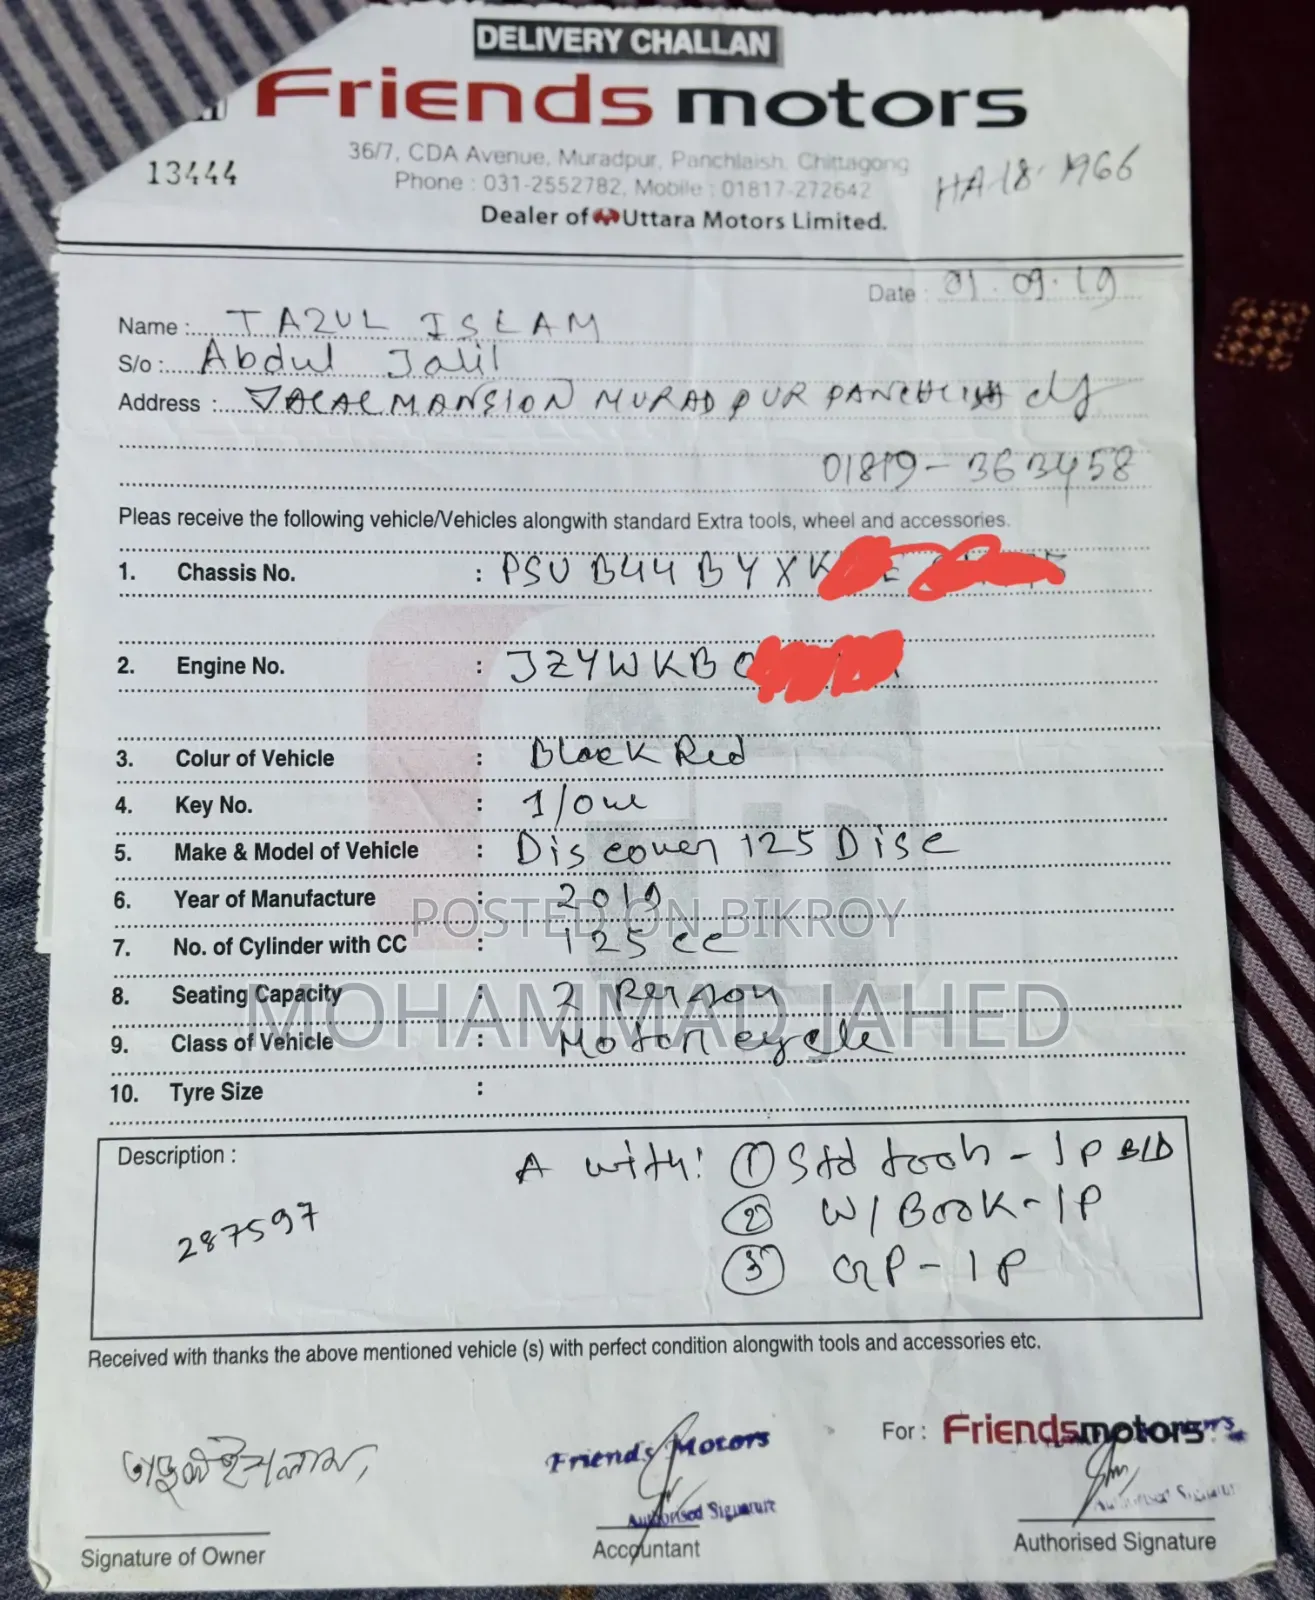 DELIVERY CHALLAN
Friends motors
13444
36/7, CDA Avenue, Muradpur, Panchlaish, Chittagong
Phone : 031-2552782, Mobile : 01817-272642
HA-18-1966
Dealer of Uttara Motors Limited.
Date : 01.09.19
Name : TAZUL ISLAM
S/o : Abdul Jalil
Address : JALAL MANSION MURADPUR PANCHLISH ctg
01819-363458
Pleas receive the following vehicle/Vehicles alongwith standard Extra tools, wheel and accessories.
1. Chassis No. : PSUB44BYXK
2. Engine No. : JZYWKB
3. Colur of Vehicle : Black Red
4. Key No. : 1/one
5. Make & Model of Vehicle : Discover 125 Disc
6. Year of Manufacture : 2019
POSTED ON BIKROY
7. No. of Cylinder with CC : 125 cc
8. Seating Capacity : 2 Person
MOHAMMAD JAHED
9. Class of Vehicle : Motor cycle
10. Tyre Size :
Description :
A with: ① Std tools - 1P
② W/Book - 1P
287597
③ - 1P
Received with thanks the above mentioned vehicle (s) with perfect condition alongwith tools and accessories etc.
For : Friendsmotors
তাজুল ইসলাম
Friends Motors
Authorised Signature
Authorised Signature
Signature of Owner
Accountant
Authorised Signature